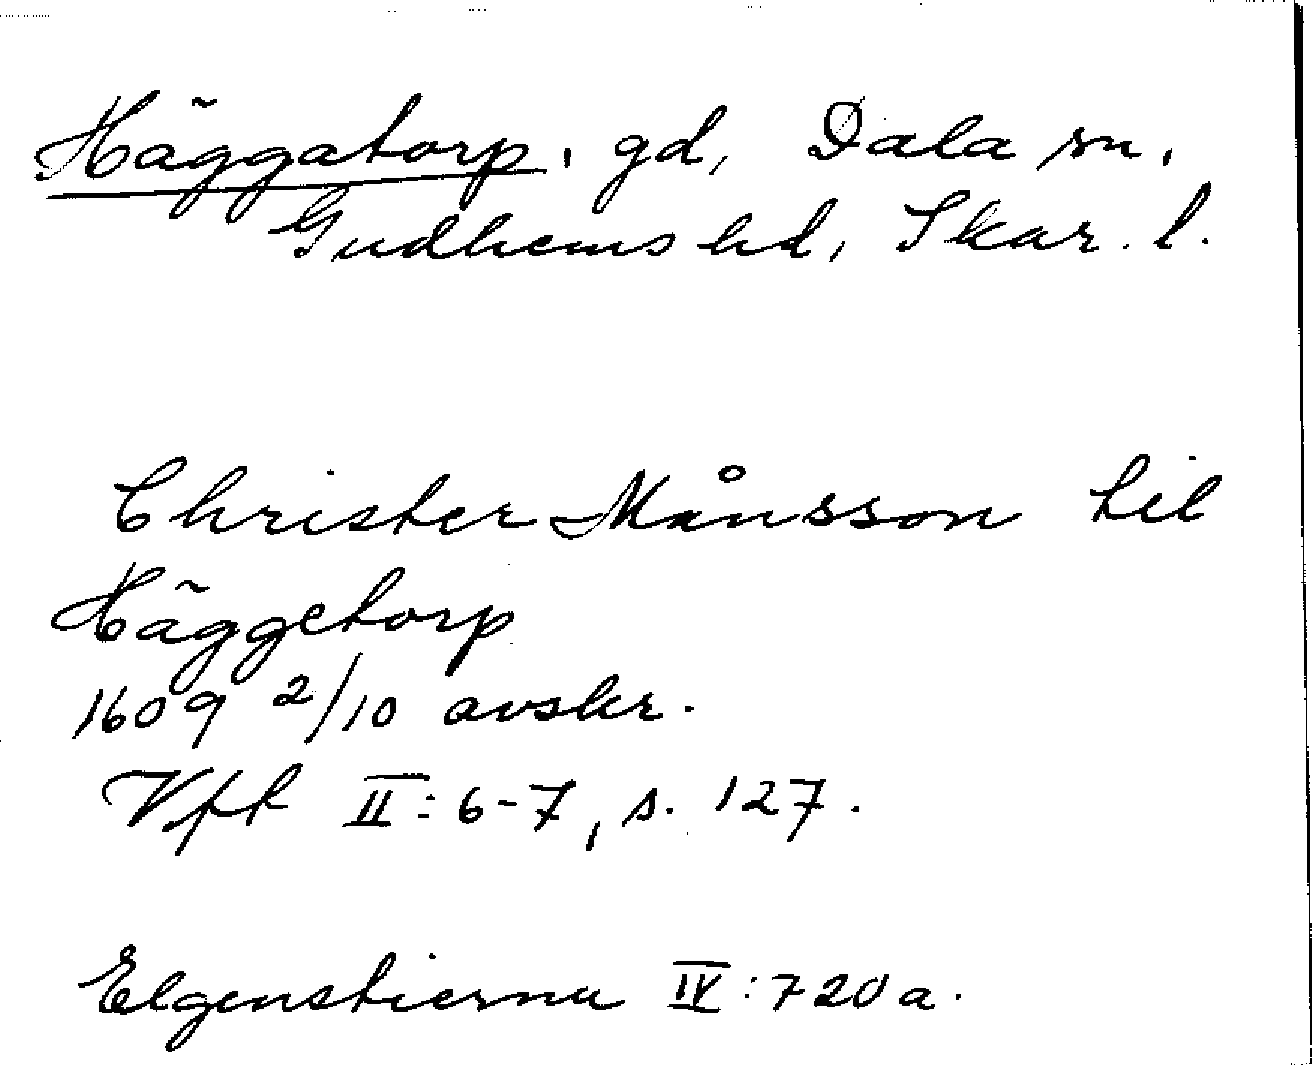 Häggatorp, gd, Dala sn,
Gudhems hd, Skar. l.
Christer Månsson til
Häggetorp
1609 2/10 avskr.
Vfft II: 6-7, s. 127.
Elgenstierna IV: 720a.